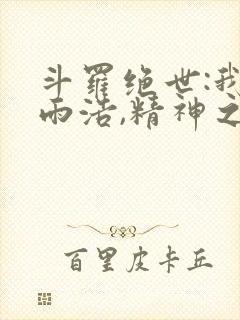 斗羅绝世:我
而活,精神之
百里皮卡丘